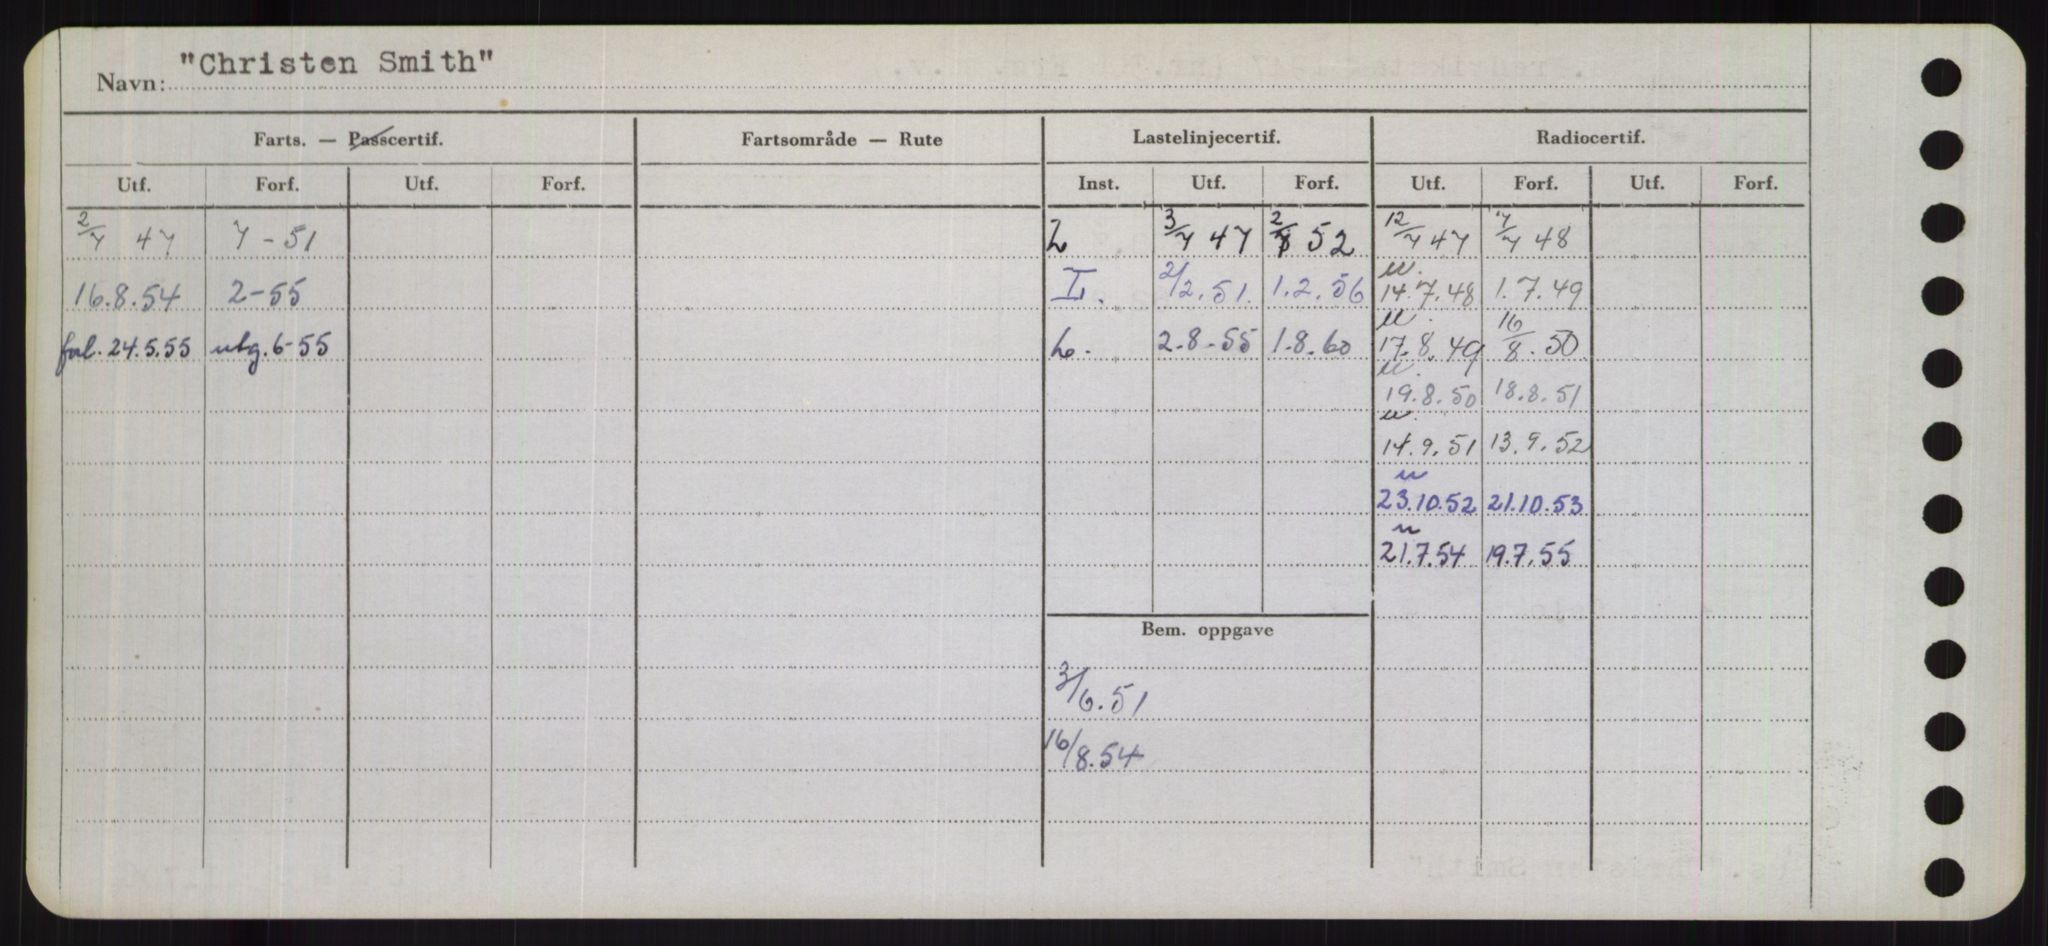 Navn: "Christen Smith"
Farts. — Passcertif. Fartsområde — Rute Lastelinjecertif. Radiocertif.
Utf. Forf. Utf. Forf. Inst. Utf. Forf. Utf. Forf. Utf. Forf.
2/7 47 7-51 L 3/7 47 2/7 52 12/7 47 7/7 48
u.
16.8.54 2-55 L. 2/2.51. 1.2.56 14.7.48 1.7.49
u.
forl. 24.5.55 utg. 6-55 L. 2.8.55 1.8.60 17.8.49 16/8.50
u.
19.8.50 18.8.51
u.
14.9.51 13.9.52
u
23.10.52 21.10.53
u
21.7.54 19.7.55
Bem. oppgave
3/6.51
16/8.54